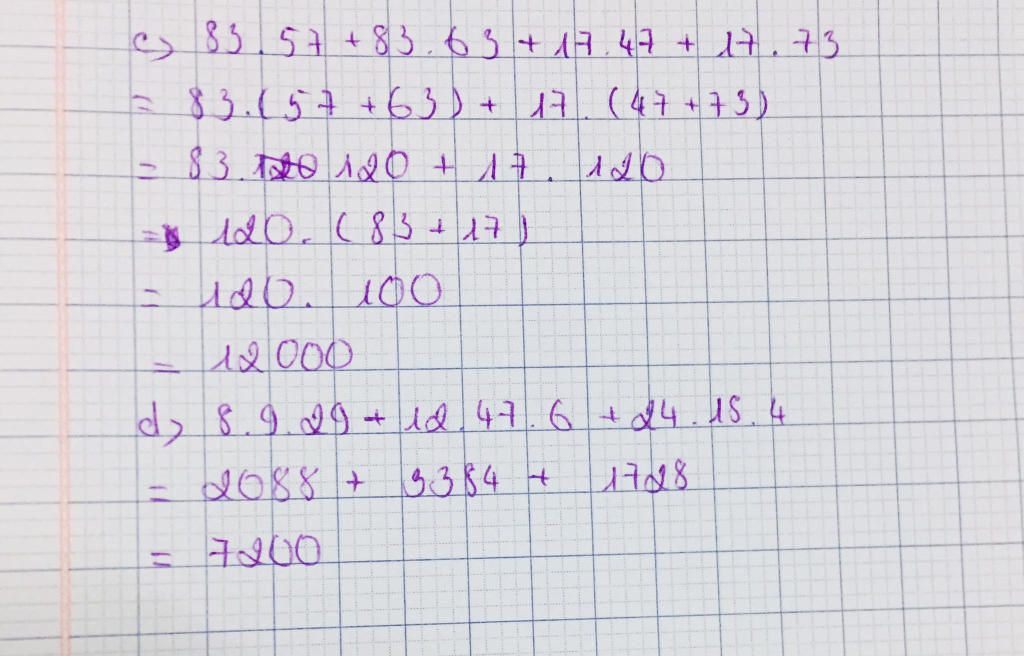 c) 83.57 + 83.63 + 17.47 + 17.73
= 83.(57 + 63) + 17.(47 + 73)
= 83. 120 + 17. 120
= 120. (83 + 17)
= 120. 100
= 12000
d) 8.9.29 + 12.47.6 + 24.18.4
= 2088 + 3384 + 1728
= 7200